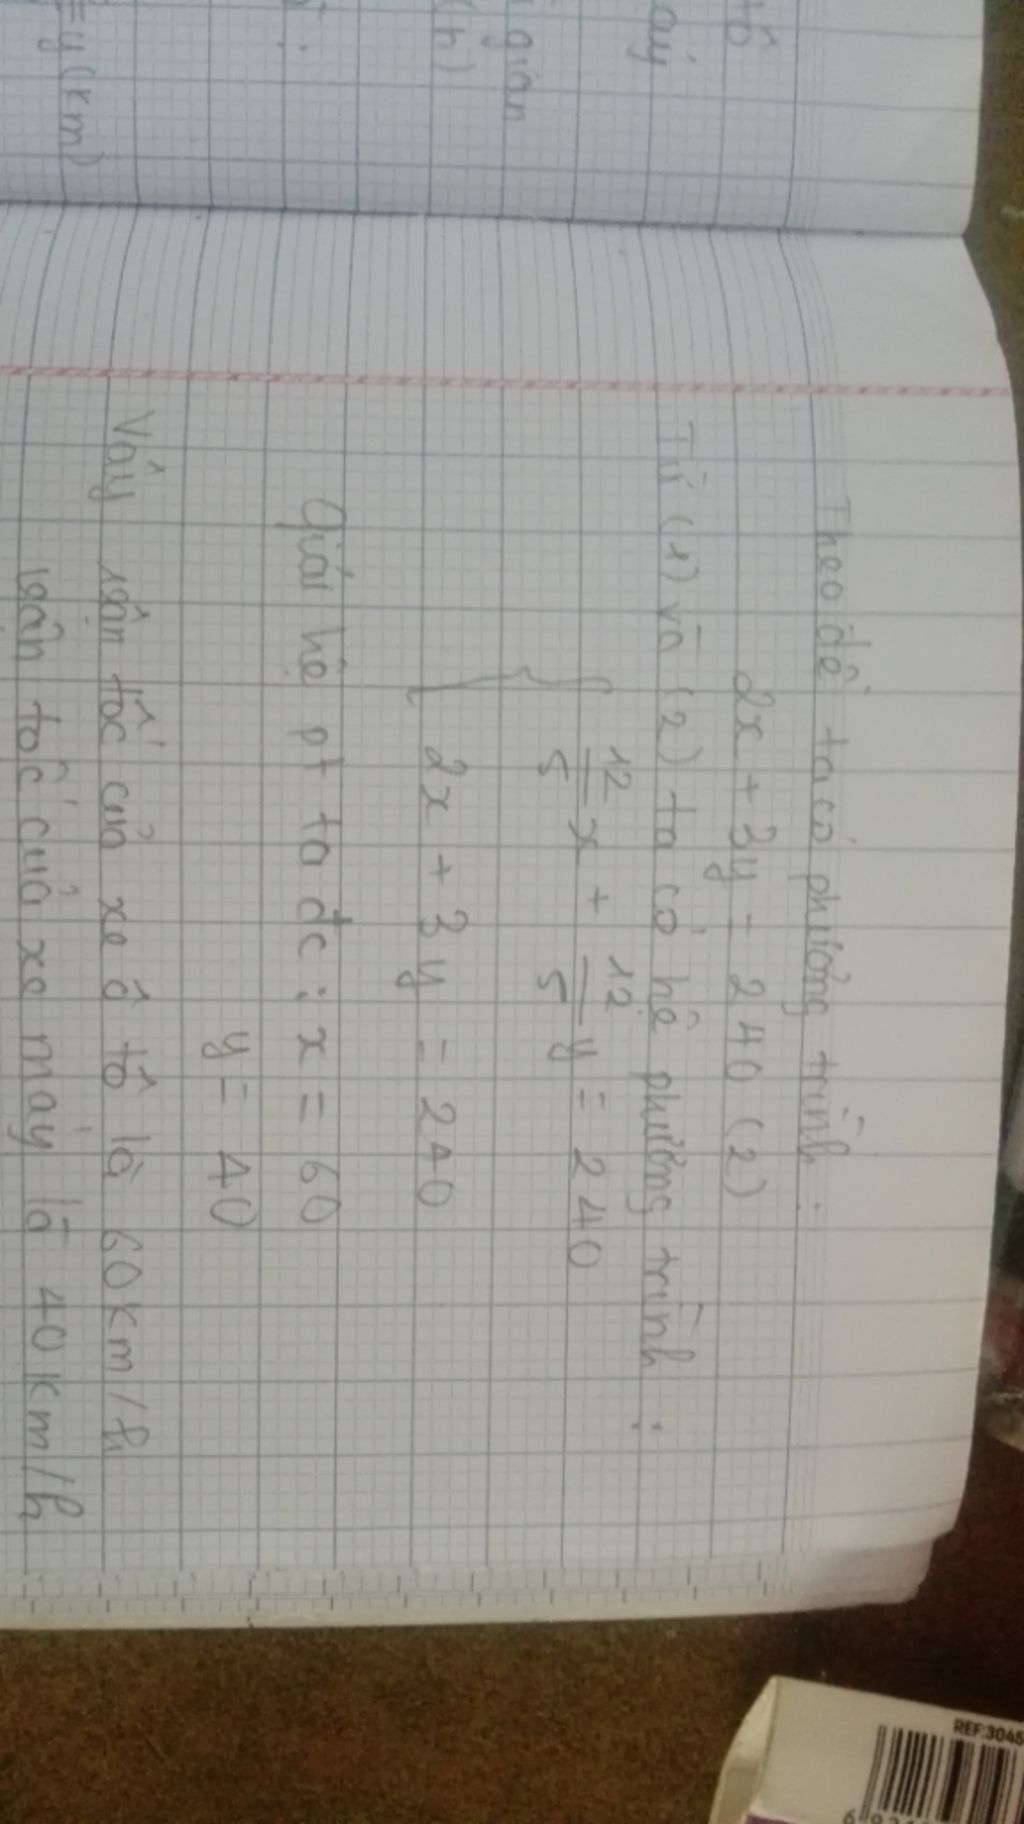 tô
áy
gian
(h)
=y(km)
Theo đề ta có phương trình :
2x + 3y = 240 (2)
Từ (1) và (2) ta có hệ phương trình :
12/5 x + 12/5 y = 240
2x + 3y = 240
Giải hệ pt ta đc : x = 60
y = 40
Vậy vận tốc của xe ô tô là 60km/h
vận tốc của xe máy là 40km/h
REF:3045